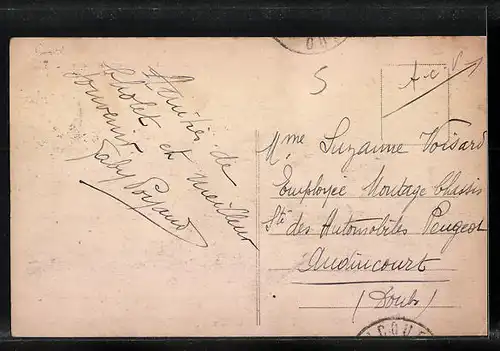 Amitiés de
Cholet et meilleur
souvenir
Gaby
S
A. C. V
Mme Suzanne Voisard
Employée Montage Chassis
Sté des Automobiles Peugeot
Audincourt
(Doubs)